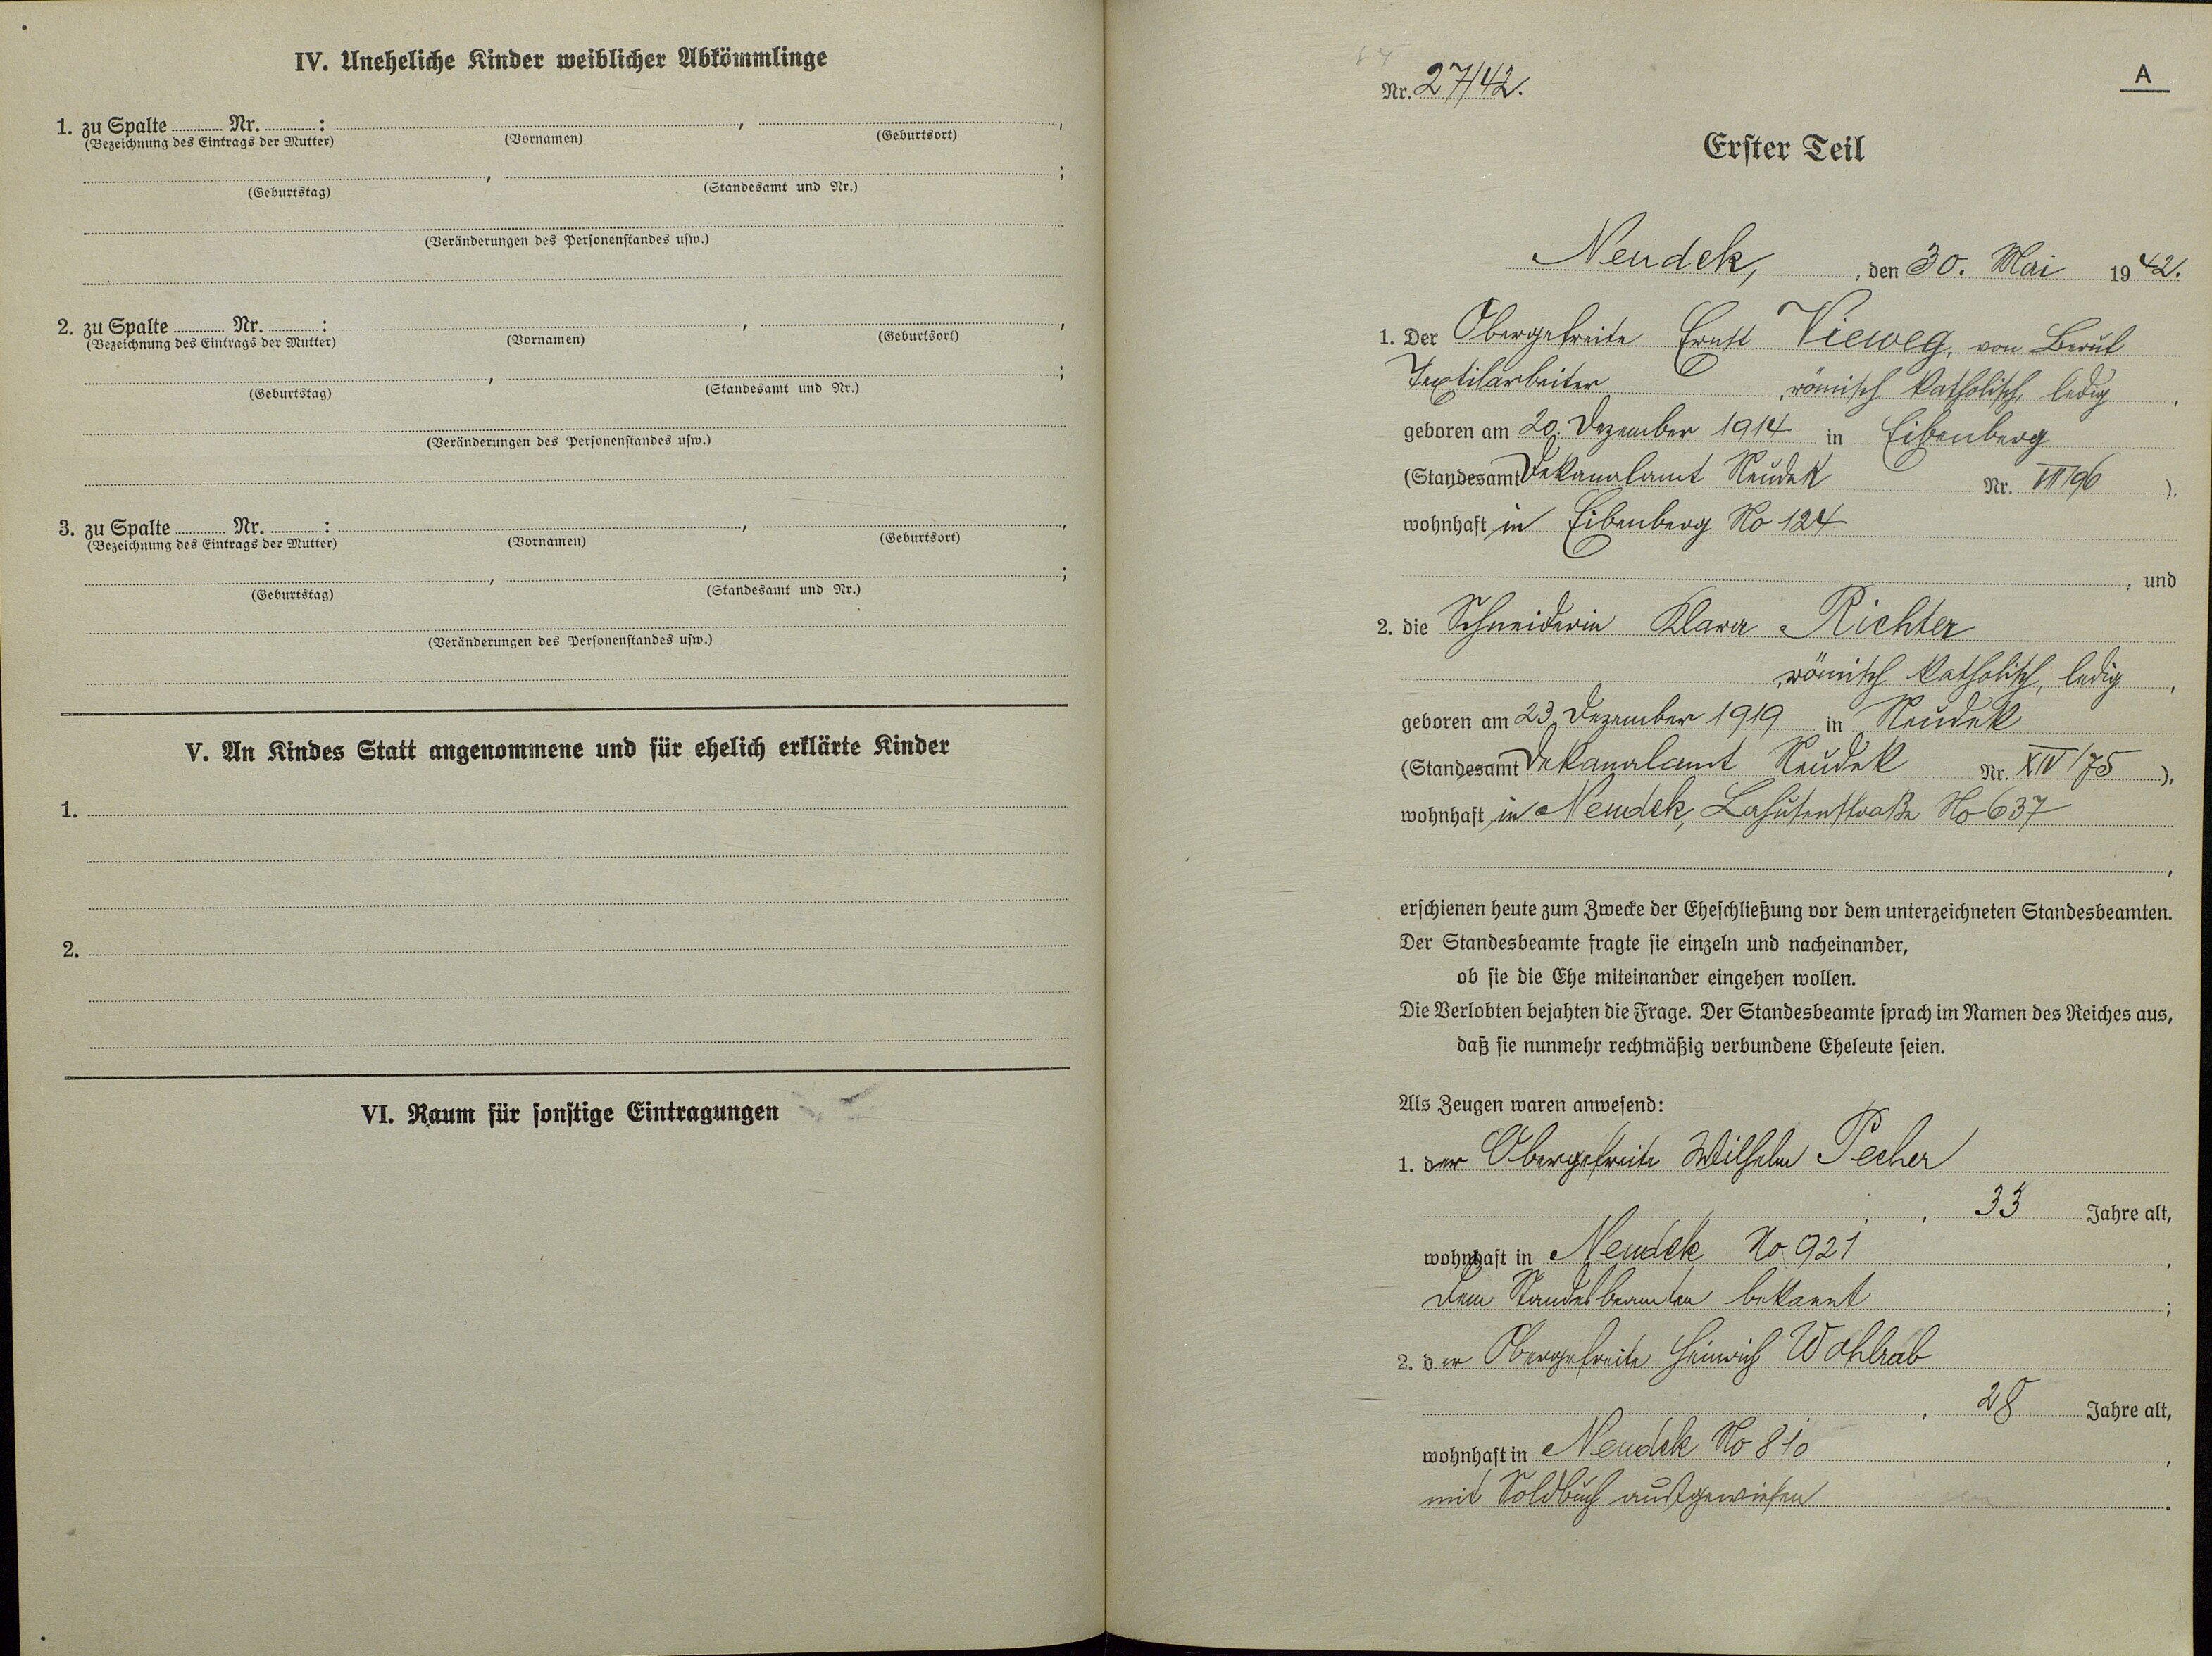 IV. Uneheliche Kinder weiblicher Abkömmlinge
1. zu Spalte ............ Nr. ............ :
(Bezeichnung des Eintrags der Mutter) (Vornamen) (Geburtsort)
(Geburtstag) (Standesamt und Nr.)
(Veränderungen des Personenstandes usw.)
2. zu Spalte ............ Nr. ............ :
(Bezeichnung des Eintrags der Mutter) (Vornamen) (Geburtsort)
(Geburtstag) (Standesamt und Nr.)
(Veränderungen des Personenstandes usw.)
3. zu Spalte ............ Nr. ............ :
(Bezeichnung des Eintrags der Mutter) (Vornamen) (Geburtsort)
(Geburtstag) (Standesamt und Nr.)
(Veränderungen des Personenstandes usw.)
V. An Kindes Statt angenommene und für ehelich erklärte Kinder
1.
2.
VI. Raum für sonstige Eintragungen
A
Nr. 27/42.
Erster Teil
Neudek, , den 30. Mai 1942.
1. Der Obergefreite Ernst Vieweg, von Beruf
Textilarbeiter , römisch katholisch, ledig ,
geboren am 20. Dezember 1914 in Eibenberg
(Standesamt Dekanalamt Neudek Nr. VII/96 ),
wohnhaft in Eibenberg No 124
, und
2. die Schneiderin Klara Richter
, römisch katholisch, ledig ,
geboren am 23. Dezember 1919 in Neudek
(Standesamt Dekanalamt Neudek Nr. XIV/75 ),
wohnhaft in Neudek, Lahusenstraße No 637
,
erschienen heute zum Zwecke der Eheschließung vor dem unterzeichneten Standesbeamten.
Der Standesbeamte fragte sie einzeln und nacheinander,
ob sie die Ehe miteinander eingehen wollen.
Die Verlobten bejahten die Frage. Der Standesbeamte sprach im Namen des Reiches aus,
daß sie nunmehr rechtmäßig verbundene Eheleute seien.
Als Zeugen waren anwesend:
1. der Obergefreite Wilhelm Pecher
, 33 Jahre alt,
wohnhaft in Neudek No 921 ,
dem Standesbeamten bekannt ;
2. der Obergefreite Heinrich Wohlrab
, 28 Jahre alt,
wohnhaft in Neudek No 810 ,
mit Soldbuch ausgewiesen .